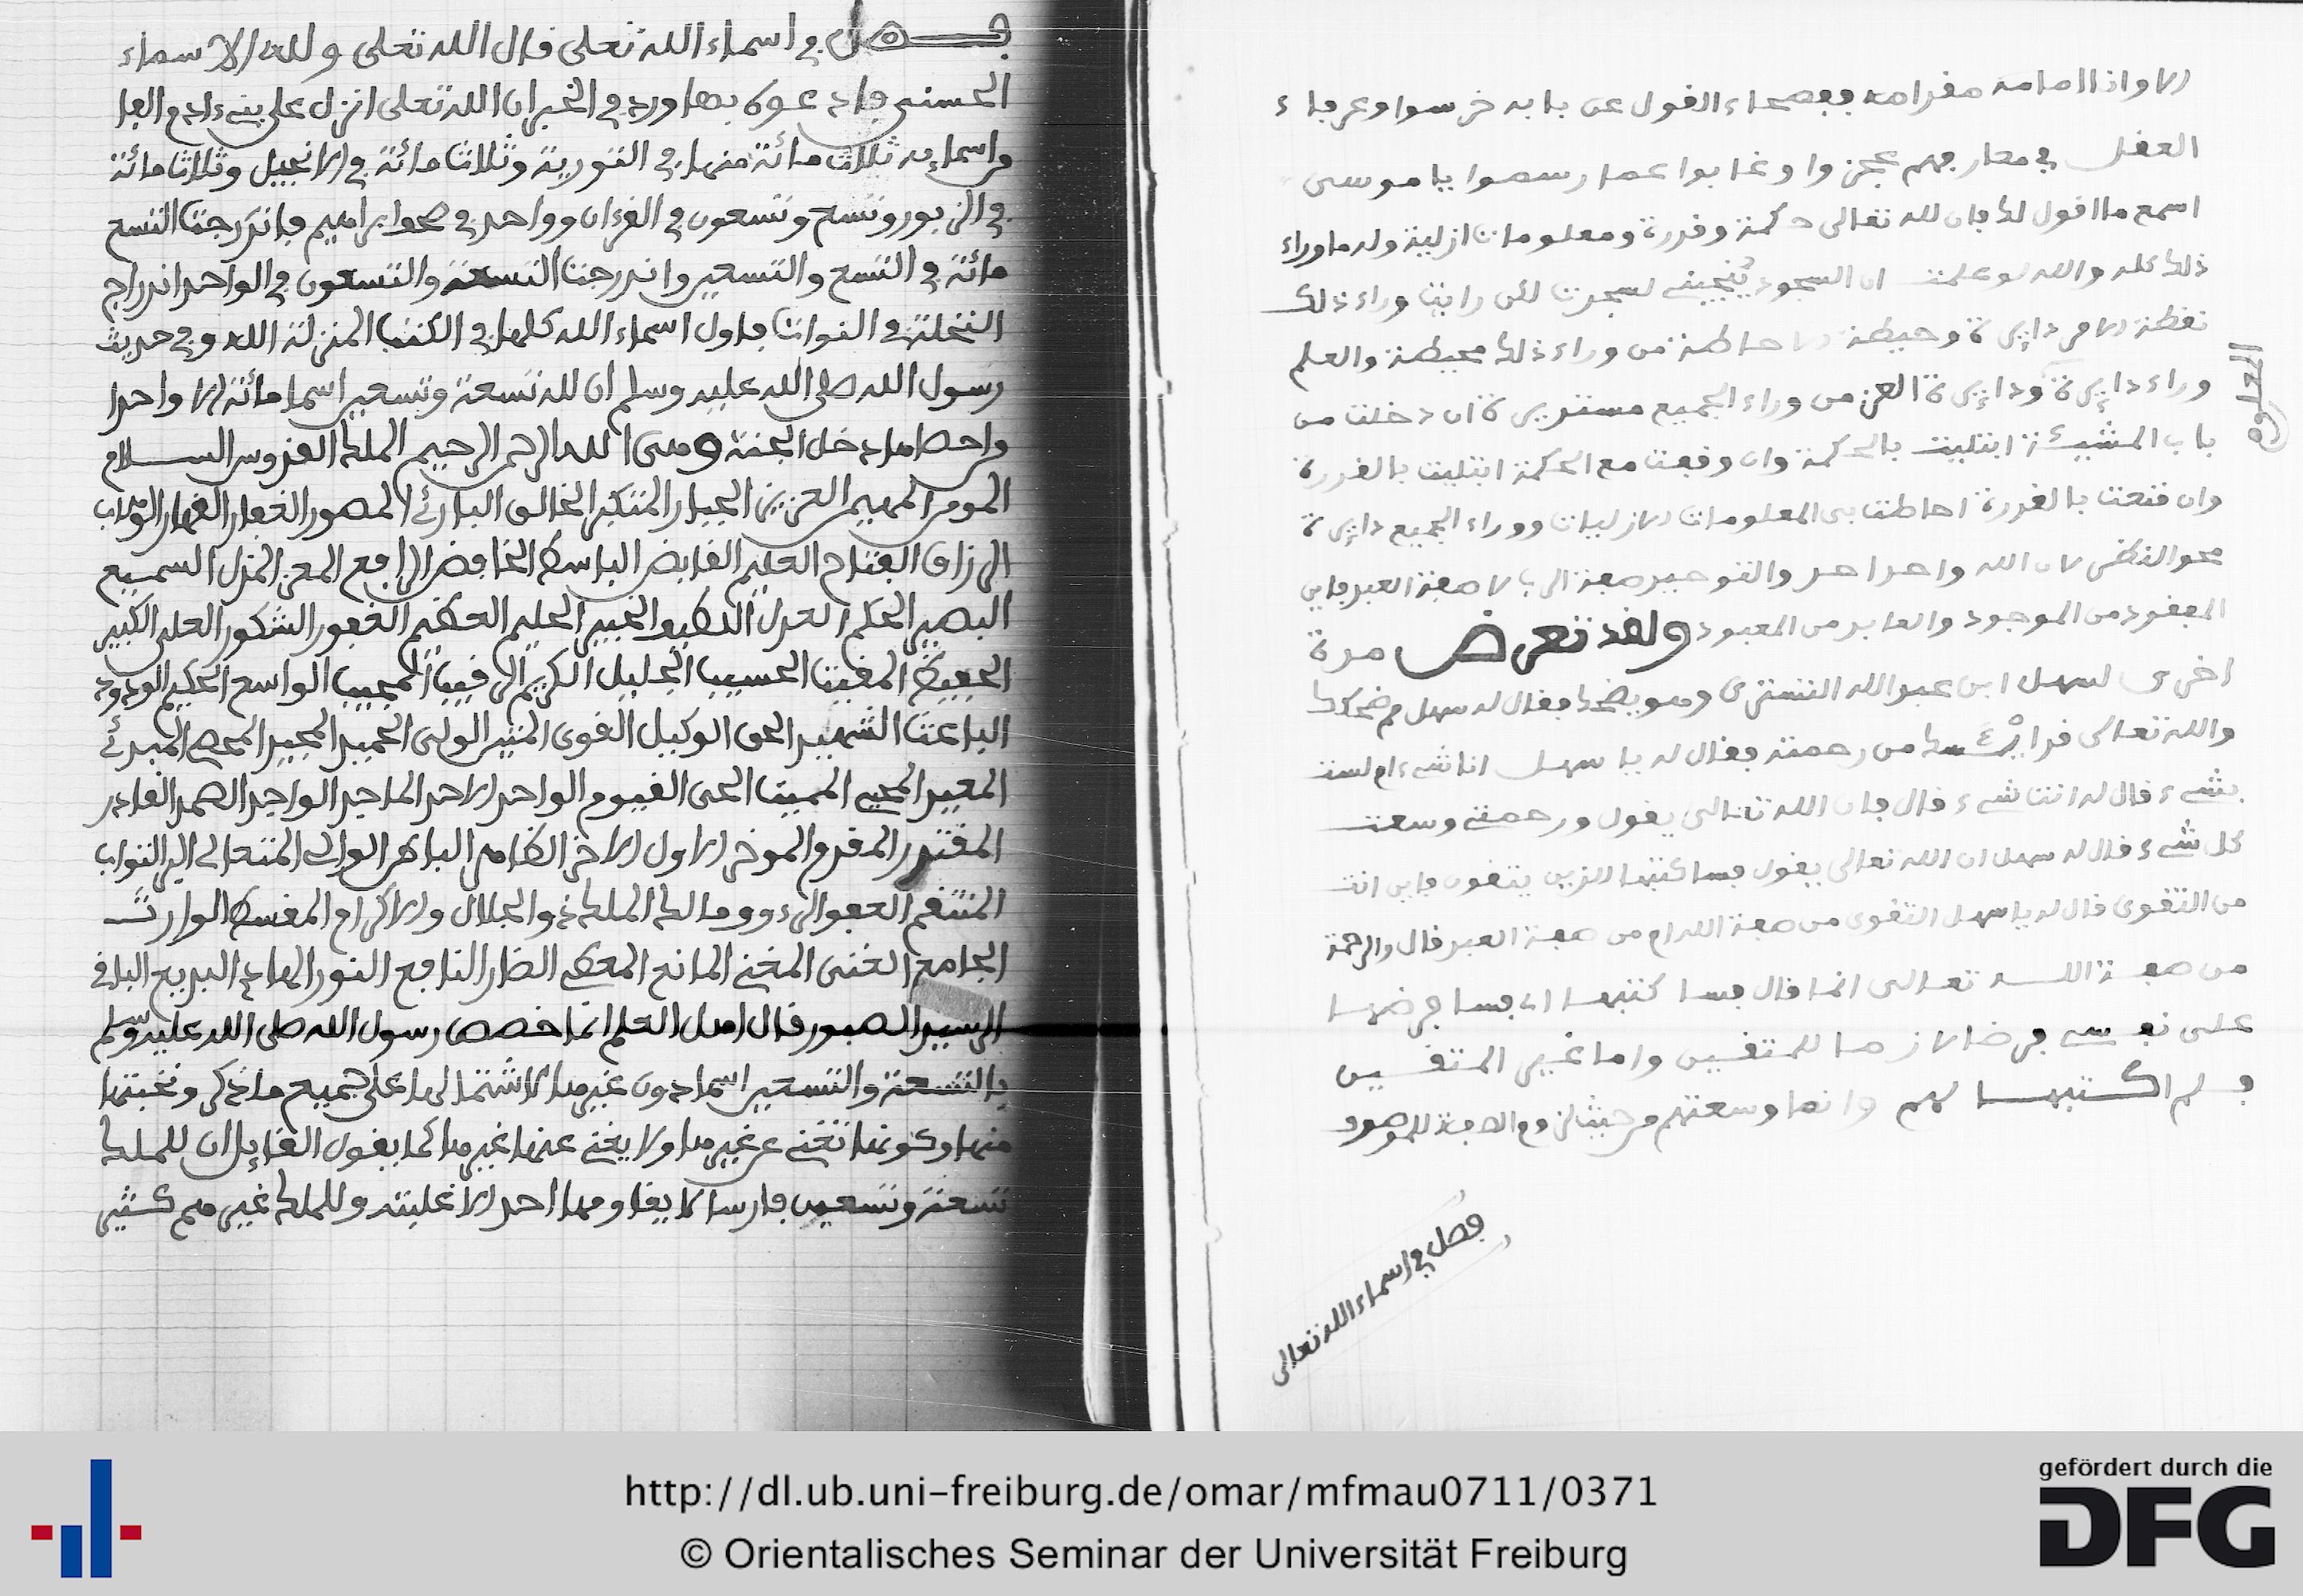 الا وانا امامه مقدامه ففصحاء القول عن بابه خرسوا وعرفاء
العقل في معارفهم عجزوا وغابوا عما رسموا يا موسى
اسمع ما اقول لك فان لله تعالى حكمة وقدرة ومعلومات ازلية وله ما وراء
ذلك كله والله لو علمت ان السجود ينجيني لسجدت لكن رايت وراء ذلك
نقطة الامر دائرة وحيطة الاحاطة من وراء ذلك محيطة والعلم
وراء دائرة ودائرة العز من وراء الجميع مستديرة ان دخلت من
باب المشيئة ابتليت بالحكمة وان وقعت مع الحكمة ابتليت بالقدرة
وان قنعت بالقدرة احاطت بي المعلومات الازليات ووراء الجميع دائرة
محو النظر لان الله واحد احد والتوحيد صفة الرب لا صفة العبد فاين
المفقود من الموجود والعابد من المعبود ولقد تعرض مرة
اخرى لسهل ابن عبد الله التستري وهو يضحك فقال له سهل مم ضحكك
والله تعالى قد ايئسك من رحمته فقال له يا سهل انا شيء ام لست
بشيء قال له انت شيء قال فان الله تعالى يقول ورحمتي وسعت
كل شيء قال له سهل ان الله تعالى يقول فساكتبها للذين يتقون فاين انت
من التقوى قال له يا سهل التقوى من صفة الله ام من صفة العبد قال والرحمة
من صفة اللـــه تعالى انما قال فسا كتبها اي فسا فرضها
على نفسي فرضا لازما للمتقين واما غير المتقين
فلم اكتبها لهم وانما وسعتهم من حيث لزوم الصفة للموصوف
المعلوم
فصل في اسماء الله تعالى
فصل في اسماء الله تعلى قال الله تعلى ولله الاسماء
الحسنى فادعوه بها ورد في الخبر ان الله تعلى انزل على بني ءادم الفا
واسماء مه ثلاث مائة منها في التورية وثلاث مائة في الانجيل وثلاث مائة
في الزبور وتسع وتسعون في القرءان وواحد في صحف ابراهيم فاندرجت التسع
مائة في التسع والتسعين واندرجت التسعة والتسعون في الواحد اندراج
النخلة في النوات فاول اسماء الله كلها في الكتب المنزلة الله وفي حديث
رسول الله صلى الله عليه وسلم ان لله تسعة وتسعين اسما مائة الا واحدا
من احصاها دخل الجنة وهي الله الرحمن الرحيم الملك القدوس الســلام
المومن المهيمن العزيز الجبار المتكبر الخالق البارئ المصور الغفار القهار الوهاب
الرزاق الفتاح العليم القابض الباسط الخافض الرافع المعز المذل السميع
البصير الحكم العدل اللطيف الخبير الحليم العظيم الغفور الشكور العلي الكبير
الحفيظ المقيت الحسيب الجليل الكريم الرقيب المجيب الواسع الحكيم الودود
الباعث الشهيد الحق الوكيل القوي المتين الولي الحميد المجيد المحصي المبدئ
المعيد المحيي المميت الحي القيوم الواحد الاحد الماجد الواجد الصمد القادر
المقتدر المقدم الموخر الاول الاخر الظاهر الباطن الوالي المتعالي البر التواب
المنتقم العفو الرءوف مالك الملك ذو الجلال والاكرام المقسط الوارث
الجامع الغني المغني المانع المعطي الضار النافع النور الهادي البديع الباقي
الرشيد الصبور قال اهل العلم انما خصص رسول الله صلى الله عليه وسلم
بالتسعة والتسعين اسما دون غيرها لاشتمالها على جميع ما ذكر ونخبتها
منها وكونها تغني عن غيرها ولا يغني عنها غيرها كما يقول القائل ان للملك
تسعة وتسعين فارسا لا يقاومها احد الا غلبته وللملك غيرهم كثير
http://dl.ub.uni-freiburg.de/omar/mfmau0711/0371
© Orientalisches Seminar der Universität Freiburg
gefördert durch die
DFG